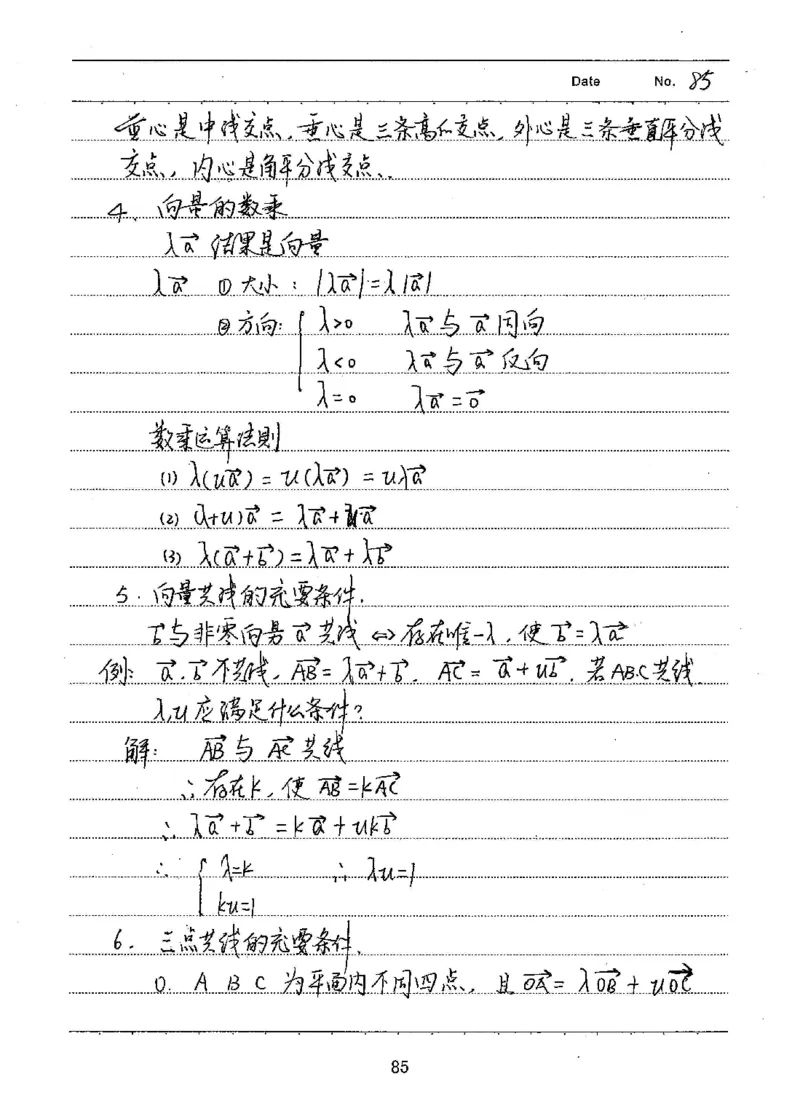 Date No. 85
重心是中线交点，垂心是三条高的交点，外心是三条垂直平分线
交点，内心是角平分线交点．
4．向量的数乘
λa⃗ 结果是向量
λa⃗ ①大小：|λa⃗|=λ|a⃗|
②方向：{ λ>0 λa⃗与a⃗同向
λ<0 λa⃗与a⃗反向
λ=0 λa⃗=0⃗
数乘运算法则
(1) λ(ua⃗)=u(λa⃗)=uλa⃗
(2) (λ+u)a⃗=λa⃗+ua⃗
(3) λ(a⃗+b⃗)=λa⃗+λb⃗
5．向量共线的充要条件．
b⃗与非零向量a⃗共线⇔存在唯一λ，使b⃗=λa⃗
例：a⃗．b⃗不共线，AB⃗=λa⃗+b⃗．AC⃗=a⃗+ub⃗．若A.B.C共线
λ,u应满足什么条件？
解：AB⃗与AC⃗共线
∴存在k，使AB⃗=kAC⃗
∴λa⃗+b⃗=ka⃗+ukb⃗
∴{ λ=k ∴λu=1
ku=1
6．三点共线的充要条件．
O．A B C 为平面内不同四点，且OA⃗=λOB⃗+uOC⃗
85